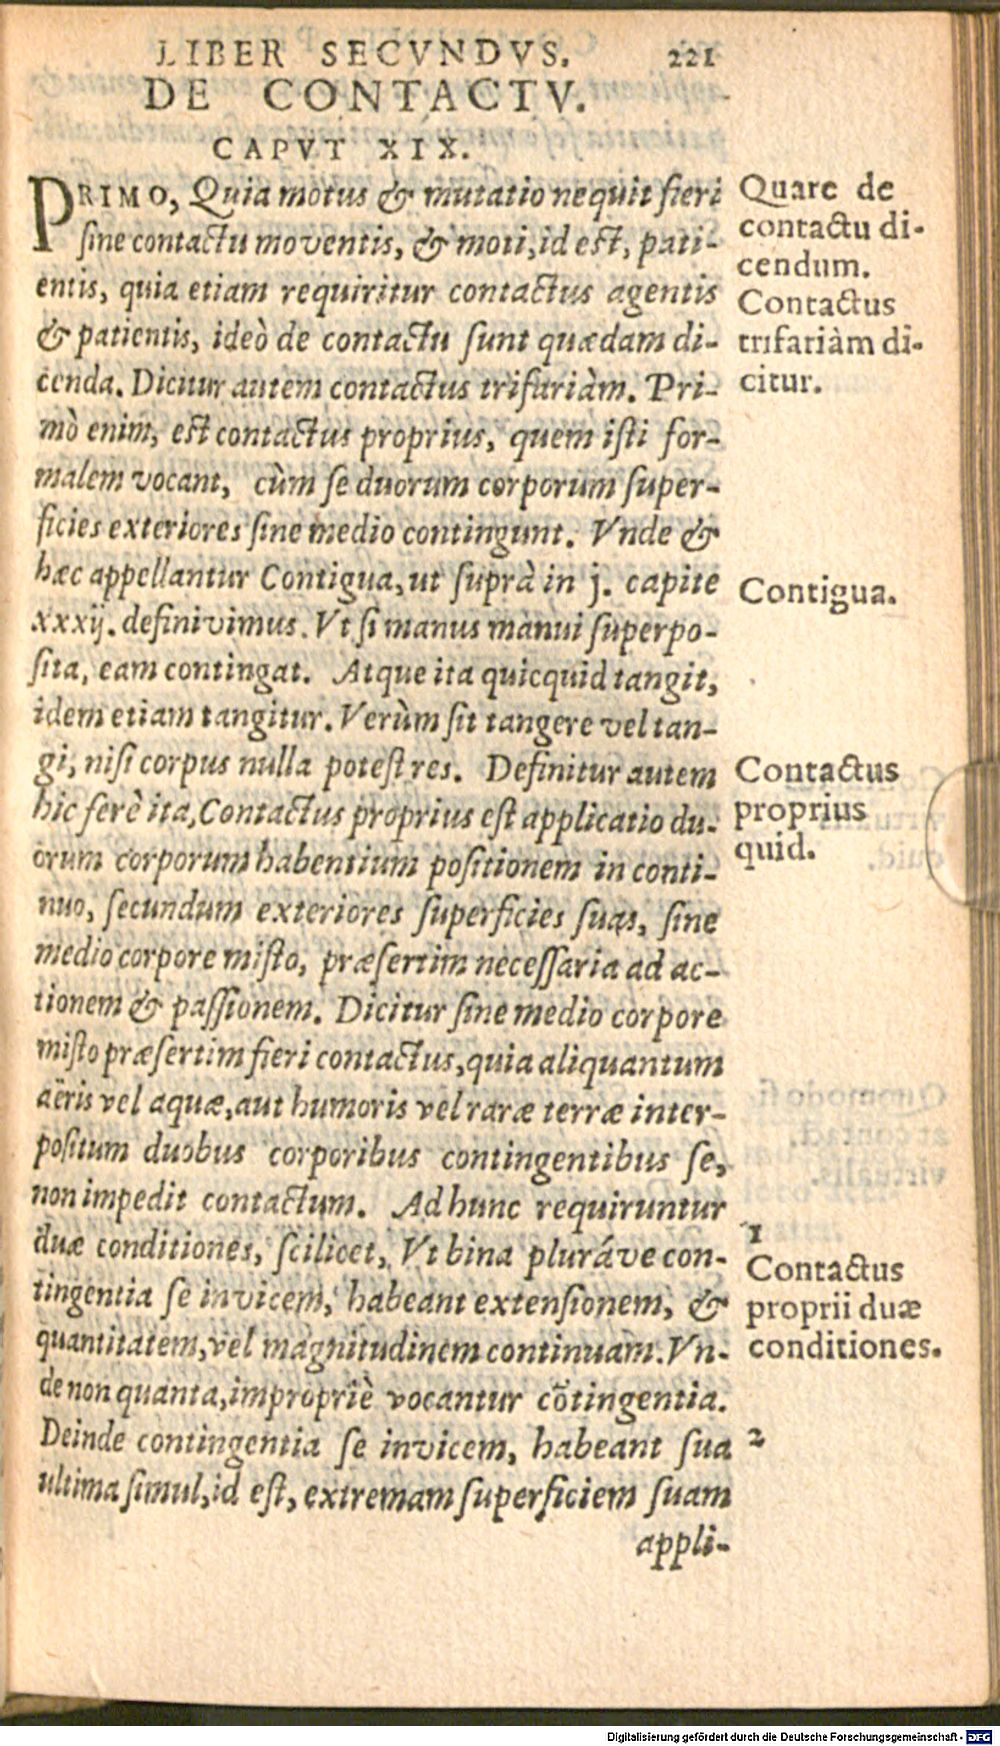 LIBER SECVNDVS. 221
DE CONTACTV.
CAPVT XIX.
PRIMO, Quia motus & mutatio nequit fieri
sine contactu moventis, & moti, id est, pati-
entis, quia etiam requiritur contactus agentis
& patientis, ideò de contactu sunt quædam di-
cenda. Dicitur autem contactus trifariàm. Pri-
mò enim, est contactus proprius, quem isti for-
malem vocant, cùm se duorum corporum super-
ficies exteriores sine medio contingunt. Vnde &
hæc appellantur Contigua, ut suprà in j. capite
xxxij. definivimus. Vt si manus manui superpo-
sita, eam contingat. Atque ita quicquid tangit,
idem etiam tangitur. Verùm sit tangere vel tan-
gi, nisi corpus nulla potest res. Definitur autem
hic ferè ita, Contactus proprius est applicatio du-
orum corporum habentium positionem in conti-
nuo, secundum exteriores superficies suas, sine
medio corpore misto, præsertim necessaria ad ac-
tionem & passionem. Dicitur sine medio corpore
misto præsertim fieri contactus, quia aliquantum
aëris vel aquæ, aut humoris vel raræ terræ inter-
positum duobus corporibus contingentibus se,
non impedit contactum. Ad hunc requiruntur
duæ conditiones, scilicet, Vt bina pluráve con-
tingentia se invicem, habeant extensionem, &
quantitatem, vel magnitudinem continuam. Vn-
de non quanta, impropriè vocantur cõtingentia.
Deinde contingentia se invicem, habeant sua
ultima simul, id est, extremam superficiem suam
appli-
Quare de
contactu di-
cendum.
Contactus
trifariàm di-
citur.
Contigua.
Contactus
proprius
quid.
1
Contactus
proprii duæ
conditiones.
2
Digitalisierung gefördert durch die Deutsche Forschungsgemeinschaft - DFG